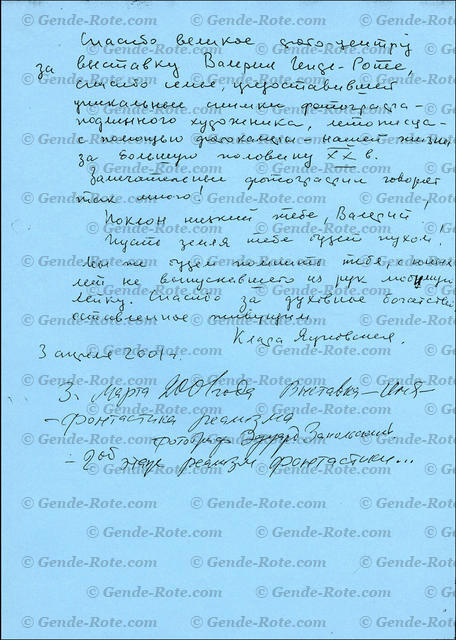 Спасибо великое фото-центру
за выставку Валерия Генде-Роте,
спасибо семье, предоставившей
уникальные снимки фотографа –
подлинного художника, летописца –
с помощью фотокамеры – нашей жизни
за большую половину XX в.
Замечательные фотографии говорят
так много!
Поклон низкий тебе, Валерий!
Пусть земля тебе будет пухом!
Мы же будем помнить тебя, с юных
лет не выпускавшего из рук любимую
лейку. Спасибо за духовное богатство,
оставленное живущим.
Клара
3 апреля 2001 г.
3. Марта 2001 года Выставка –
– Фонтастика реализма
фотограф Эдуард
– реализм фонтастики...
© Gende-Rote.com